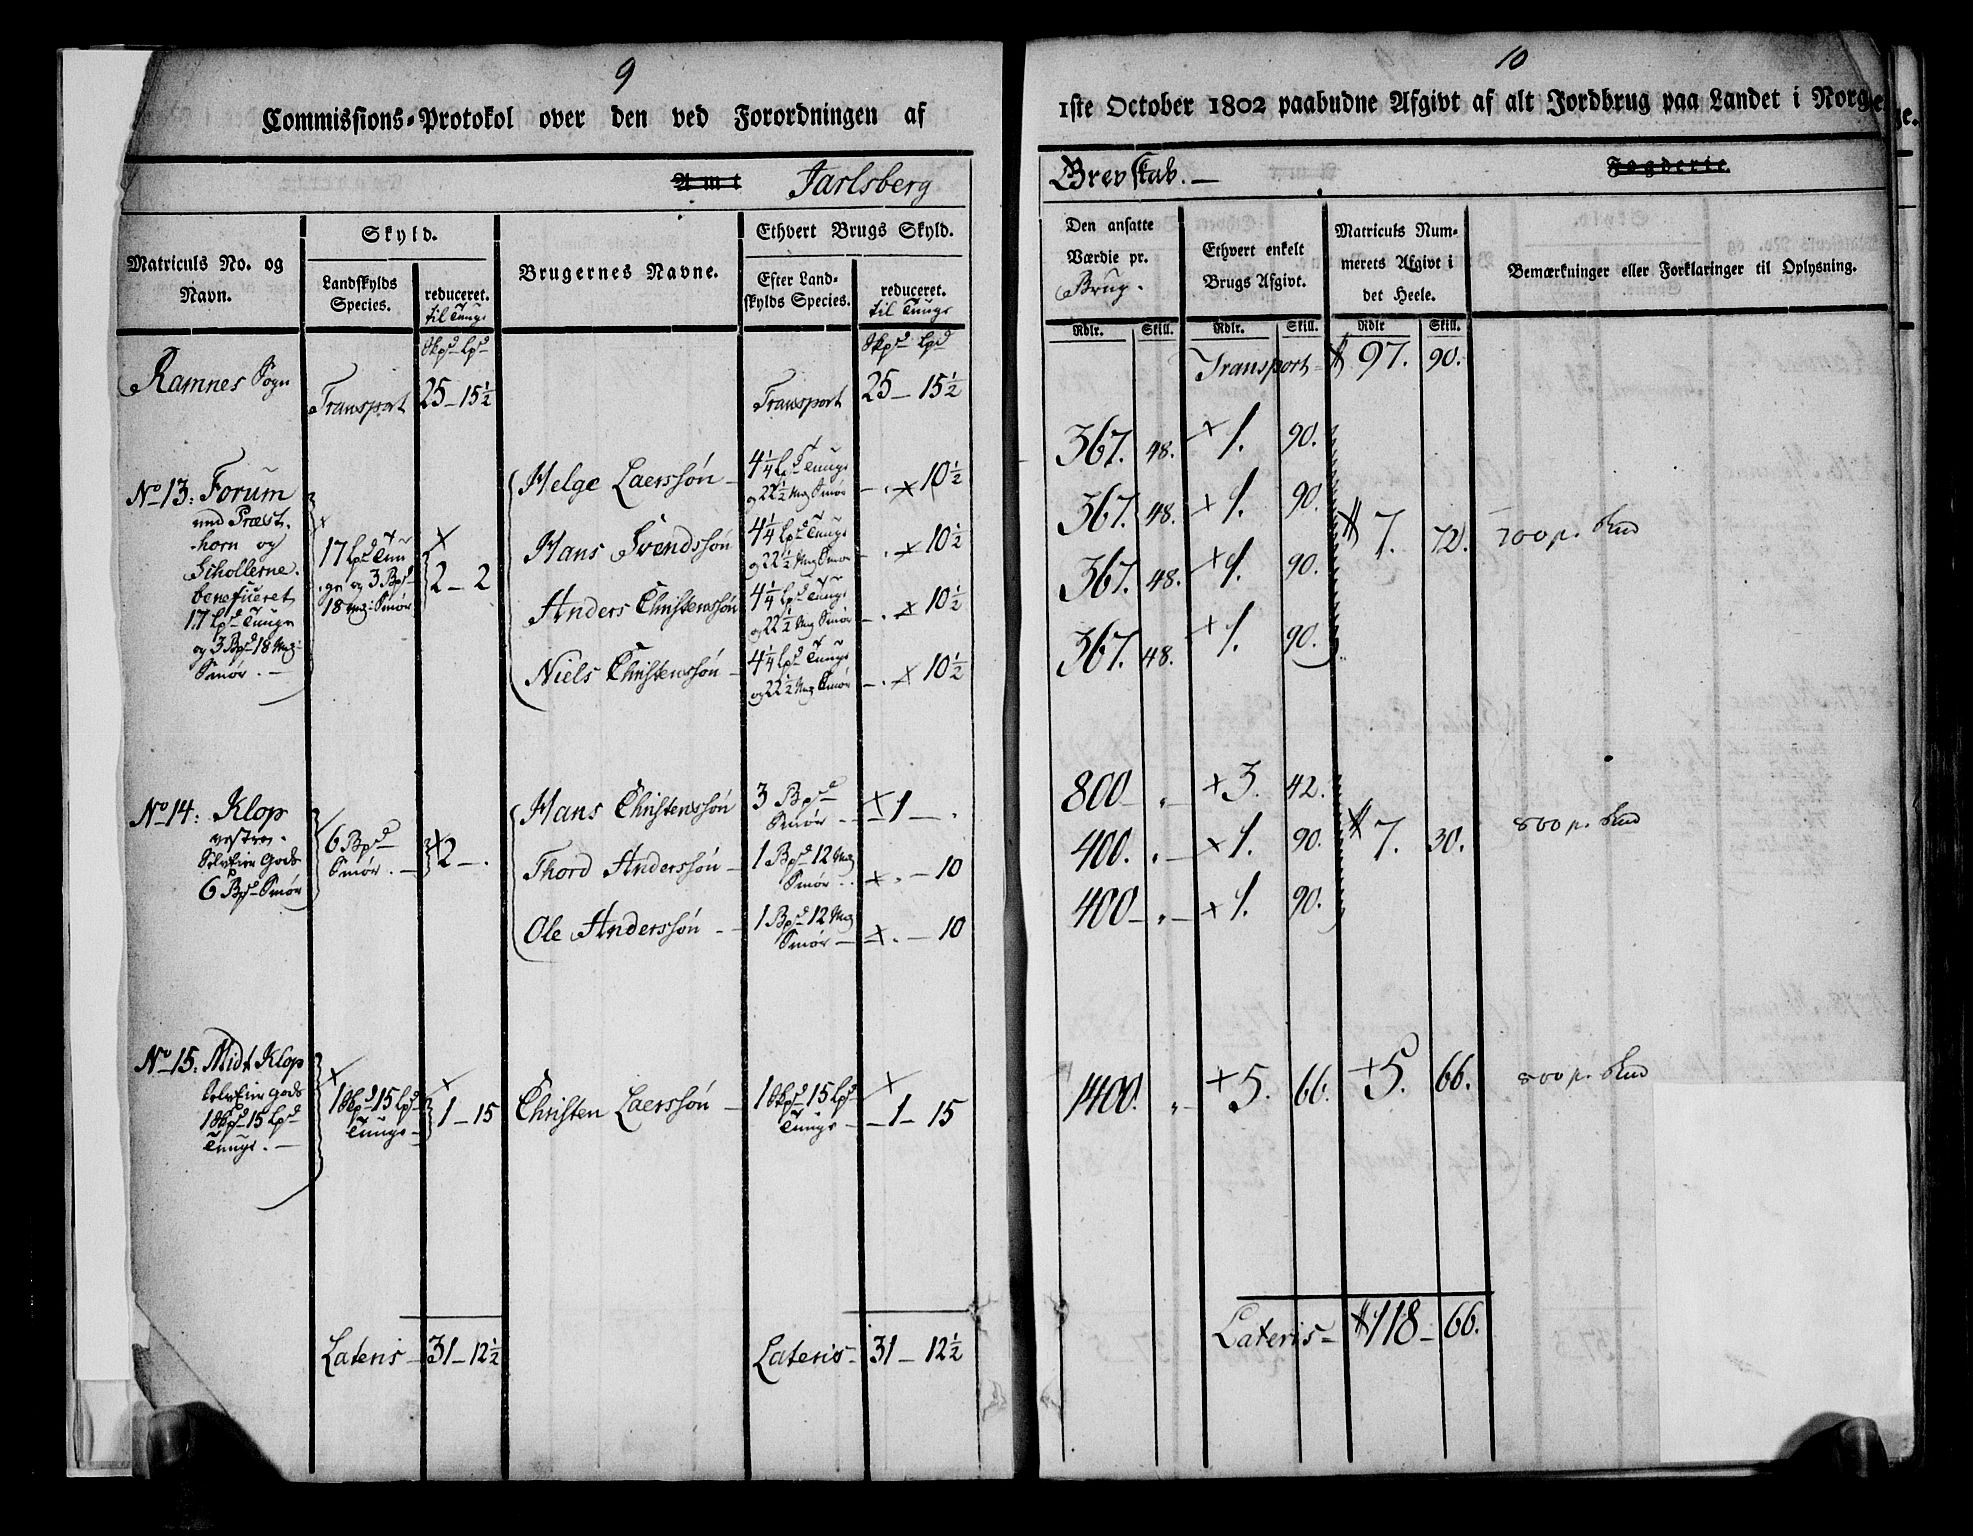 9
Commissions-Protokol over den ved Forordningen af
Amt Jarlsberg
Matriculs No. og Navn.
Skyld.
Landskylds Species.
reduceret. til Tunge
Brugernes Navne.
Ethvert Brugs Skyld.
Efter Landskylds Species.
reduceret. til Tunge
Skpd Lpd
Skpd Lpd
Ramnes Sogn
Transport 25 – 15½
Transport 25 – 15½
No 13: Forum
und Præst
horn og
Schollerne.
beneficeret
17 Lpd Tunge
og 3 Bpd 18 Mg:
Smør. –
17 Lpd Tun
ge og 3 Bpd
18 Mg: Smør
2 – 2
Helge Laerssøn – 4¼ Lpd Tunge og 22½ Mg Smør – . x 10½
Hans Svendssøn 4¼ Lpd Tunge og 22½ Mg Smør – . x 10½
Anders Christenssøn 4¼ Lpd Tunge og 22½ Mg Smør – . x 10½
Niels Christenssøn – 4¼ Lpd Tunge og 22½ Mg Smør – . x 10½
No 14: Klop
vestre.
SelvEier Gods
6 Bpd Smør
6 Bpd
Smør. –
x 2 – .
Hans Christenssøn 3 Bpd Smør – x 1 – .
Thord Anderssøn – 1 Bpd 12 Mg Smør . . x . – 10
Ole Anderssøn – 1 Bpd 12 Mg Smør – x . – 10
No 15: Midt Klop
SelvEier Gods
1 Skpd 15 Lpd
Tunge. –
x 1 Skpd 15 Lpd
Tunge –
x 1 – 15
Christen Laerssøn – 1 Skpd 15 Lpd Tunge – x 1 – 15
Lateris – 31 – 12½
Lateris – 31 – 12½
10
1ste October 1802 paabudne Afgivt af alt Jordbrug paa Landet i Norge.
Grevskab. –
Fogderie.
Den ansatte Værdie pr. Brug.
Ethvert enkelt Brugs Afgivt.
Matriculs Nummerets Afgivt i det Heele.
Bemærkninger eller Forklaringer til Oplysning.
Rdlr. Skill. Rdlr. Skill. Rdlr Skill.
Transport – 97. 90.
367. 48. x 1. 90.
367. 48. x 1. 90.
7. 72. 700 p. Skd
367. 48. x 1. 90.
367. 48. x 1. 90.
800 – . – x 3. 42.
400. . – x 1. 90. 7. 30. 800 p. Skd
400 – . – x 1. 90.
1400. . – x 5. 66. x 5. 66. 800 p. Skd
Lateris – 118 – 66.